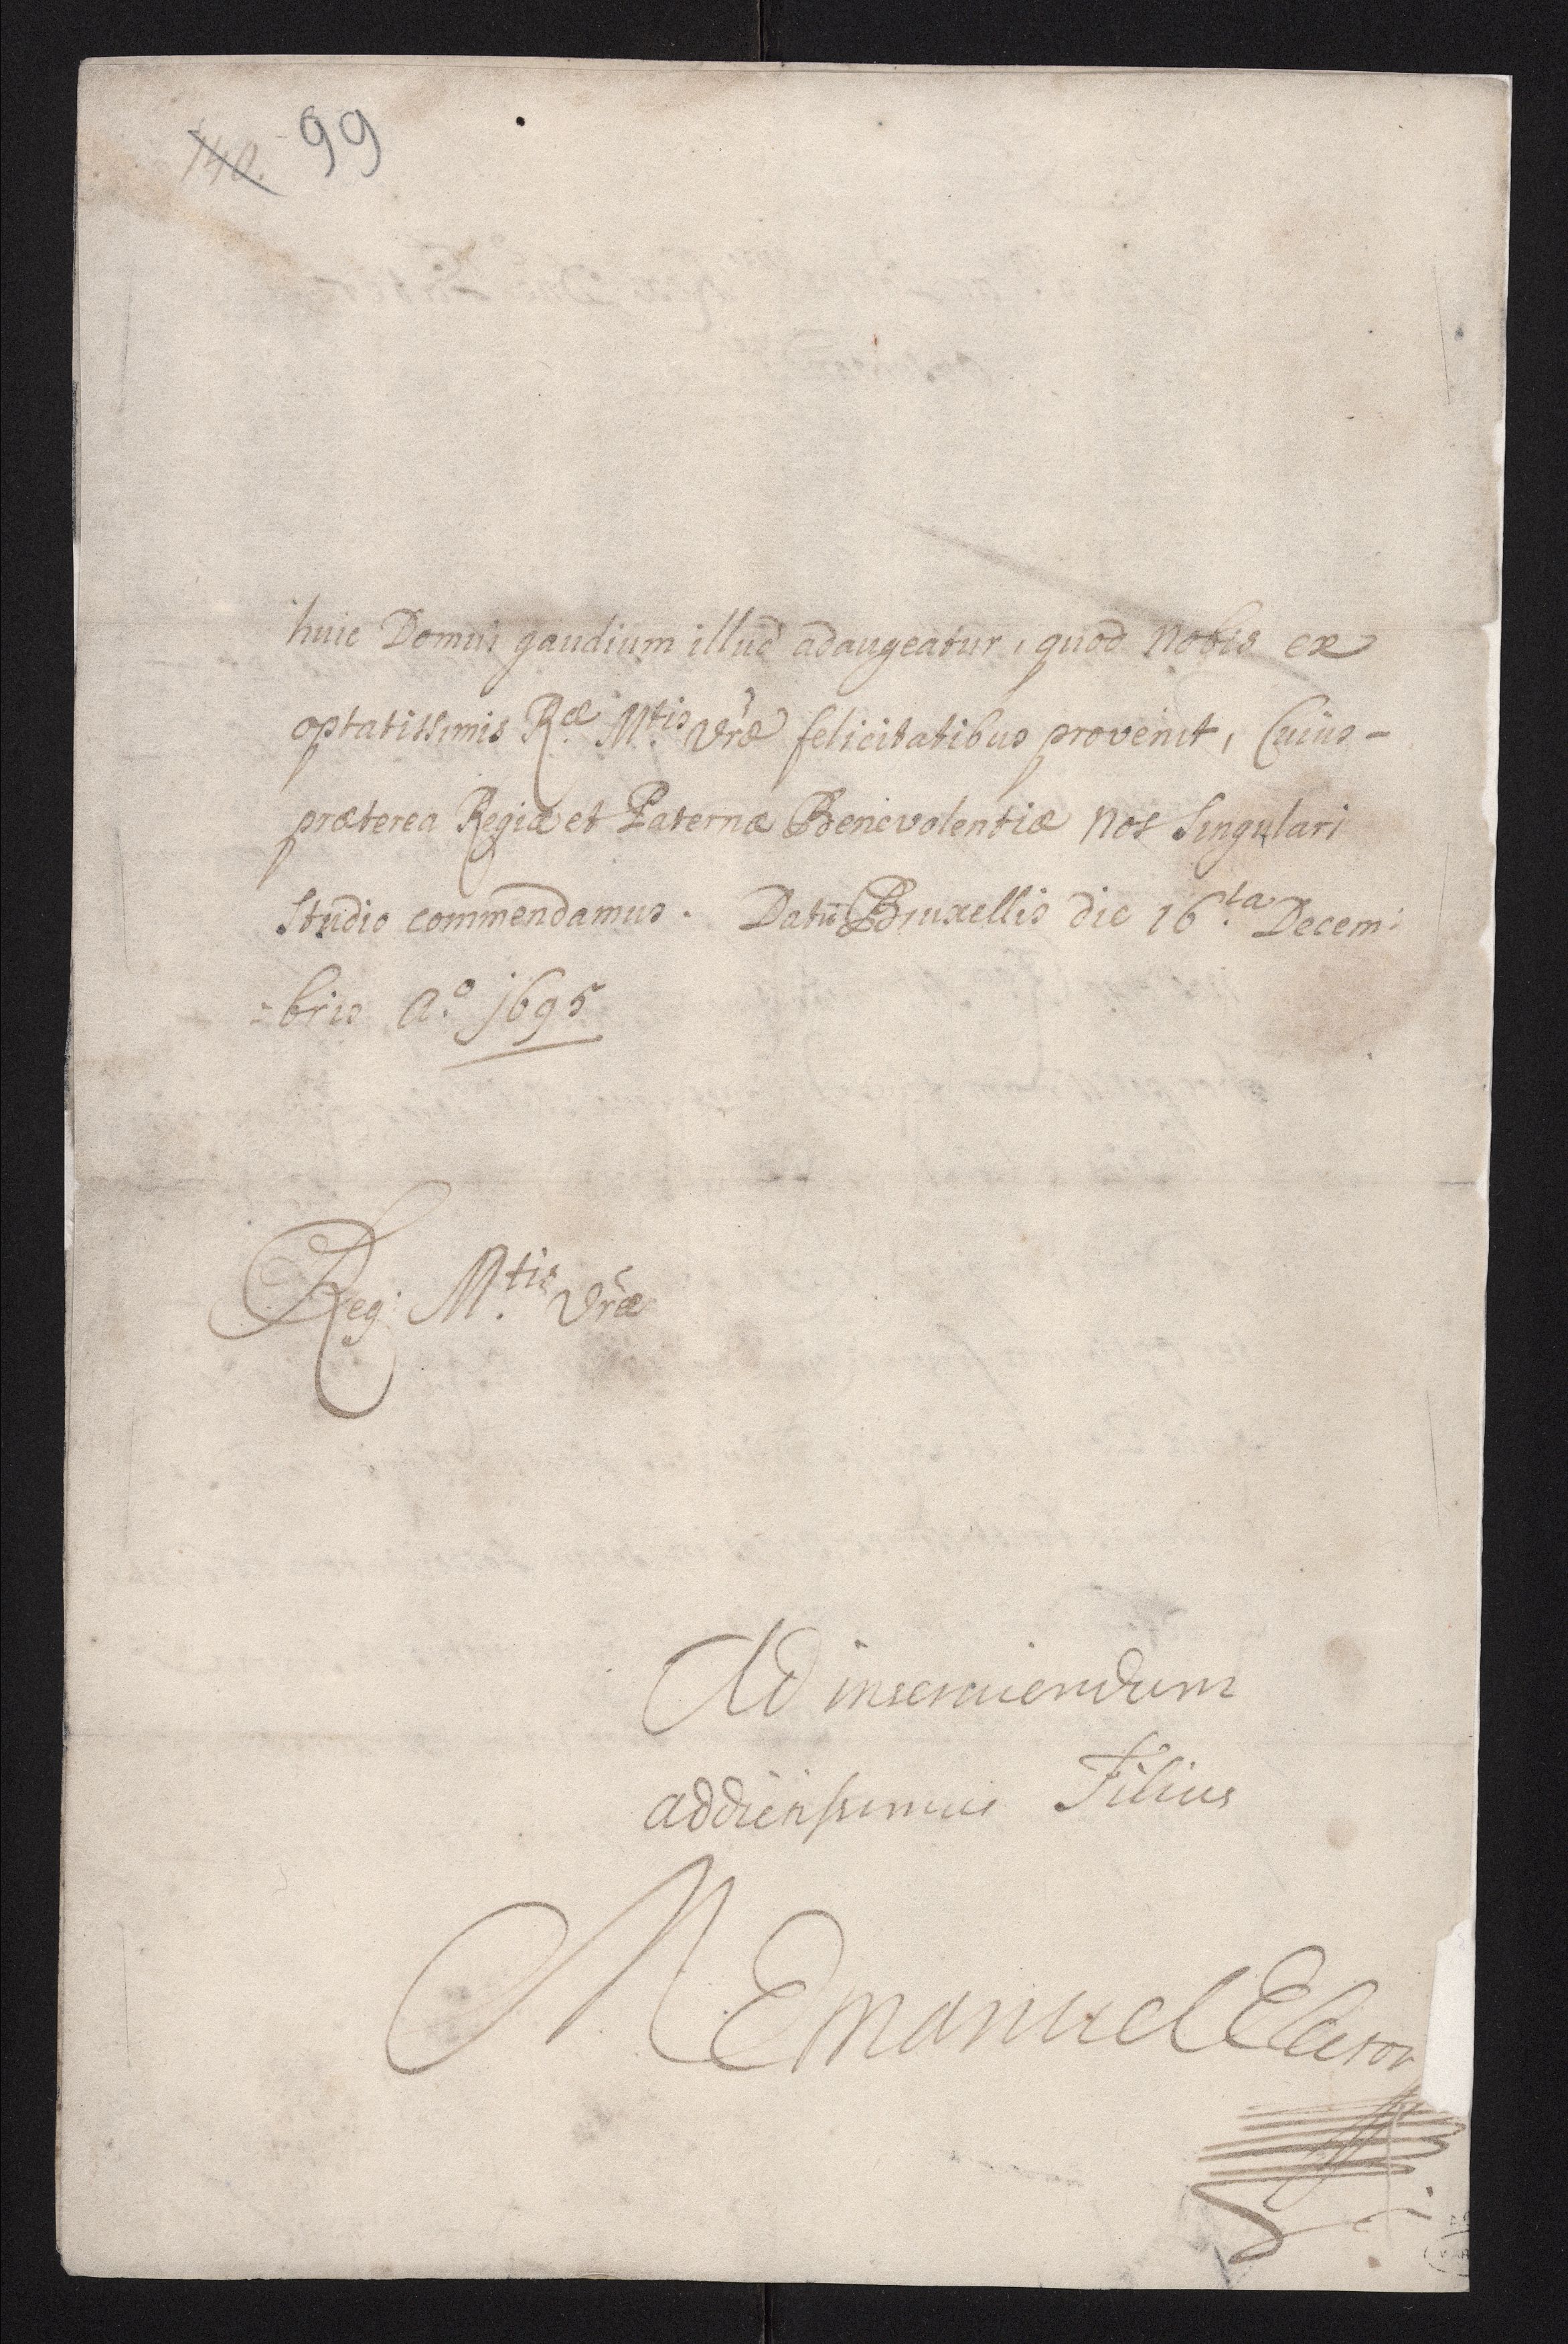 140. 99
huic Domui gaudium illud adaugeatur, quod Nobis ex
optatissimis R.æ M.tis Vræ felicitatibus provenit, Cuius-
præterea Regiæ et Paternæ Benevolentiæ Nos Singulari
Studio commendamus. Datū Bruxellis die 16.ta Decem:
=bris A.o 1695
Reg: M.tis Vræ
Ad inserviendum
addictissimus Filius
M Emanuel Elector